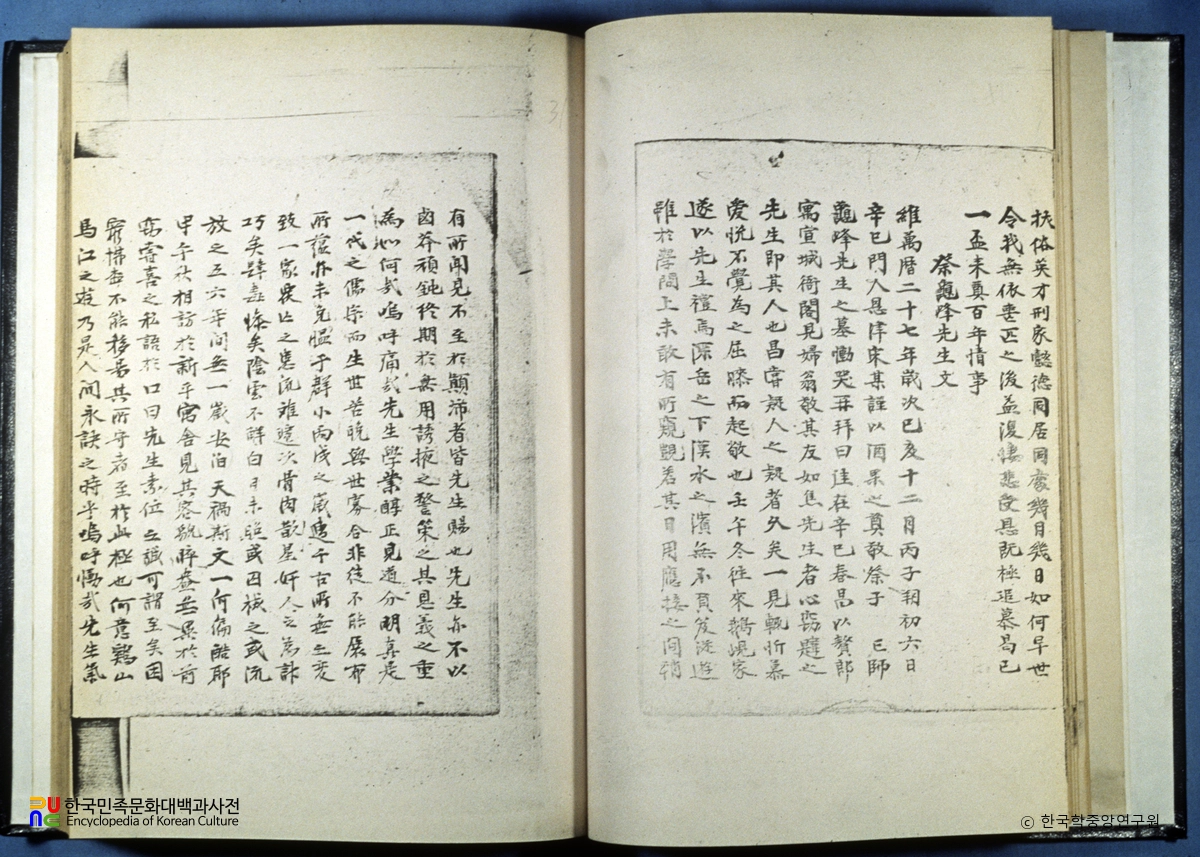 扶俗英才刑家懿德同居同處幾月幾日如何早世
令我無依喪匹之後益復悽悲受恩旣極追慕曷已
一盃來奠百年情事
祭龜峰先生文
維萬曆二十七年歲次己亥十二月丙子朔初六日
辛巳門人恩津宋某謹以酒果之奠敬祭于 亡師
龜峰先生之墓慟哭再拜曰往在辛巳春爲以贅郎
寓宣城衙閣見婦翁敬其友如焦先生者心竊疑之
先生卽其人也曷嘗疑人之疑者久矣一見輒忻慕
愛悅不覺爲之屈膝而起敬也壬午冬往來鵝峴家
遂以先生禮焉深岳之下漢水之濱無不負笈從遊
雖於學問上未敢有所窺覬若其日用應接之間稍
有所聞見不至於顚沛者皆先生賜也先生亦不以
鹵莽頑鈍終期於無用誘掖之警策之其恩義之重
爲如何哉嗚呼痛哉先生學業醇正見道分明眞是
一代之儒宗而生世苦晚與世寡合非徒不能展布
所蘊亦未免慍于群小丙戌之歲遭千古所無之變
致一家畏亡之患流離遠次骨肉散星奸人之爲計
巧矣肆毒慘矣陰雲不解白日未照或囚械之或流
放之五六年間無一歲安泊天禍斯文一何偏酷耶
甲午秋相訪於新平寓舍見其容貌睟盎無異於前
竊嘗喜之私語於口曰先生素位之識可謂至矣困
窮拂亂不能移易其所守者至於此極也何意鷄山
馬江之遊乃是人間永訣之時乎嗚呼慟哉先生氣
한국민족문화대백과사전
Encyclopedia of Korean Culture
ⓒ 한국학중앙연구원